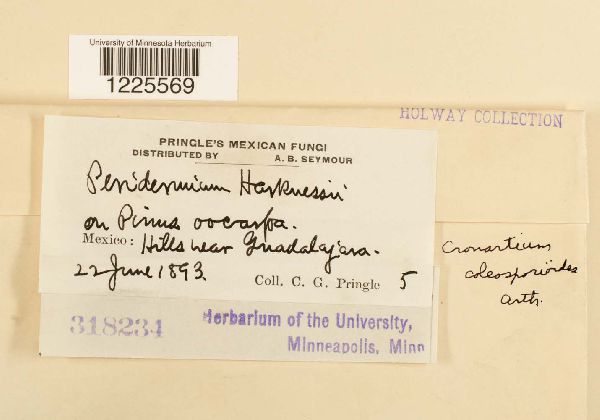 University of Minnesota Herbarium
1225569
HOLWAY COLLECTION
PRINGLE'S MEXICAN FUNGI
DISTRIBUTED BY A. B. SEYMOUR
Peridermium Harknessii
on Pinus oocarpa.
Mexico: Hills near Guadalajara.
22 June 1893.
Coll. C. G. Pringle 5
Cronartium
coleosporioides
Arth.
318234
Herbarium of the University,
Minneapolis, Minn